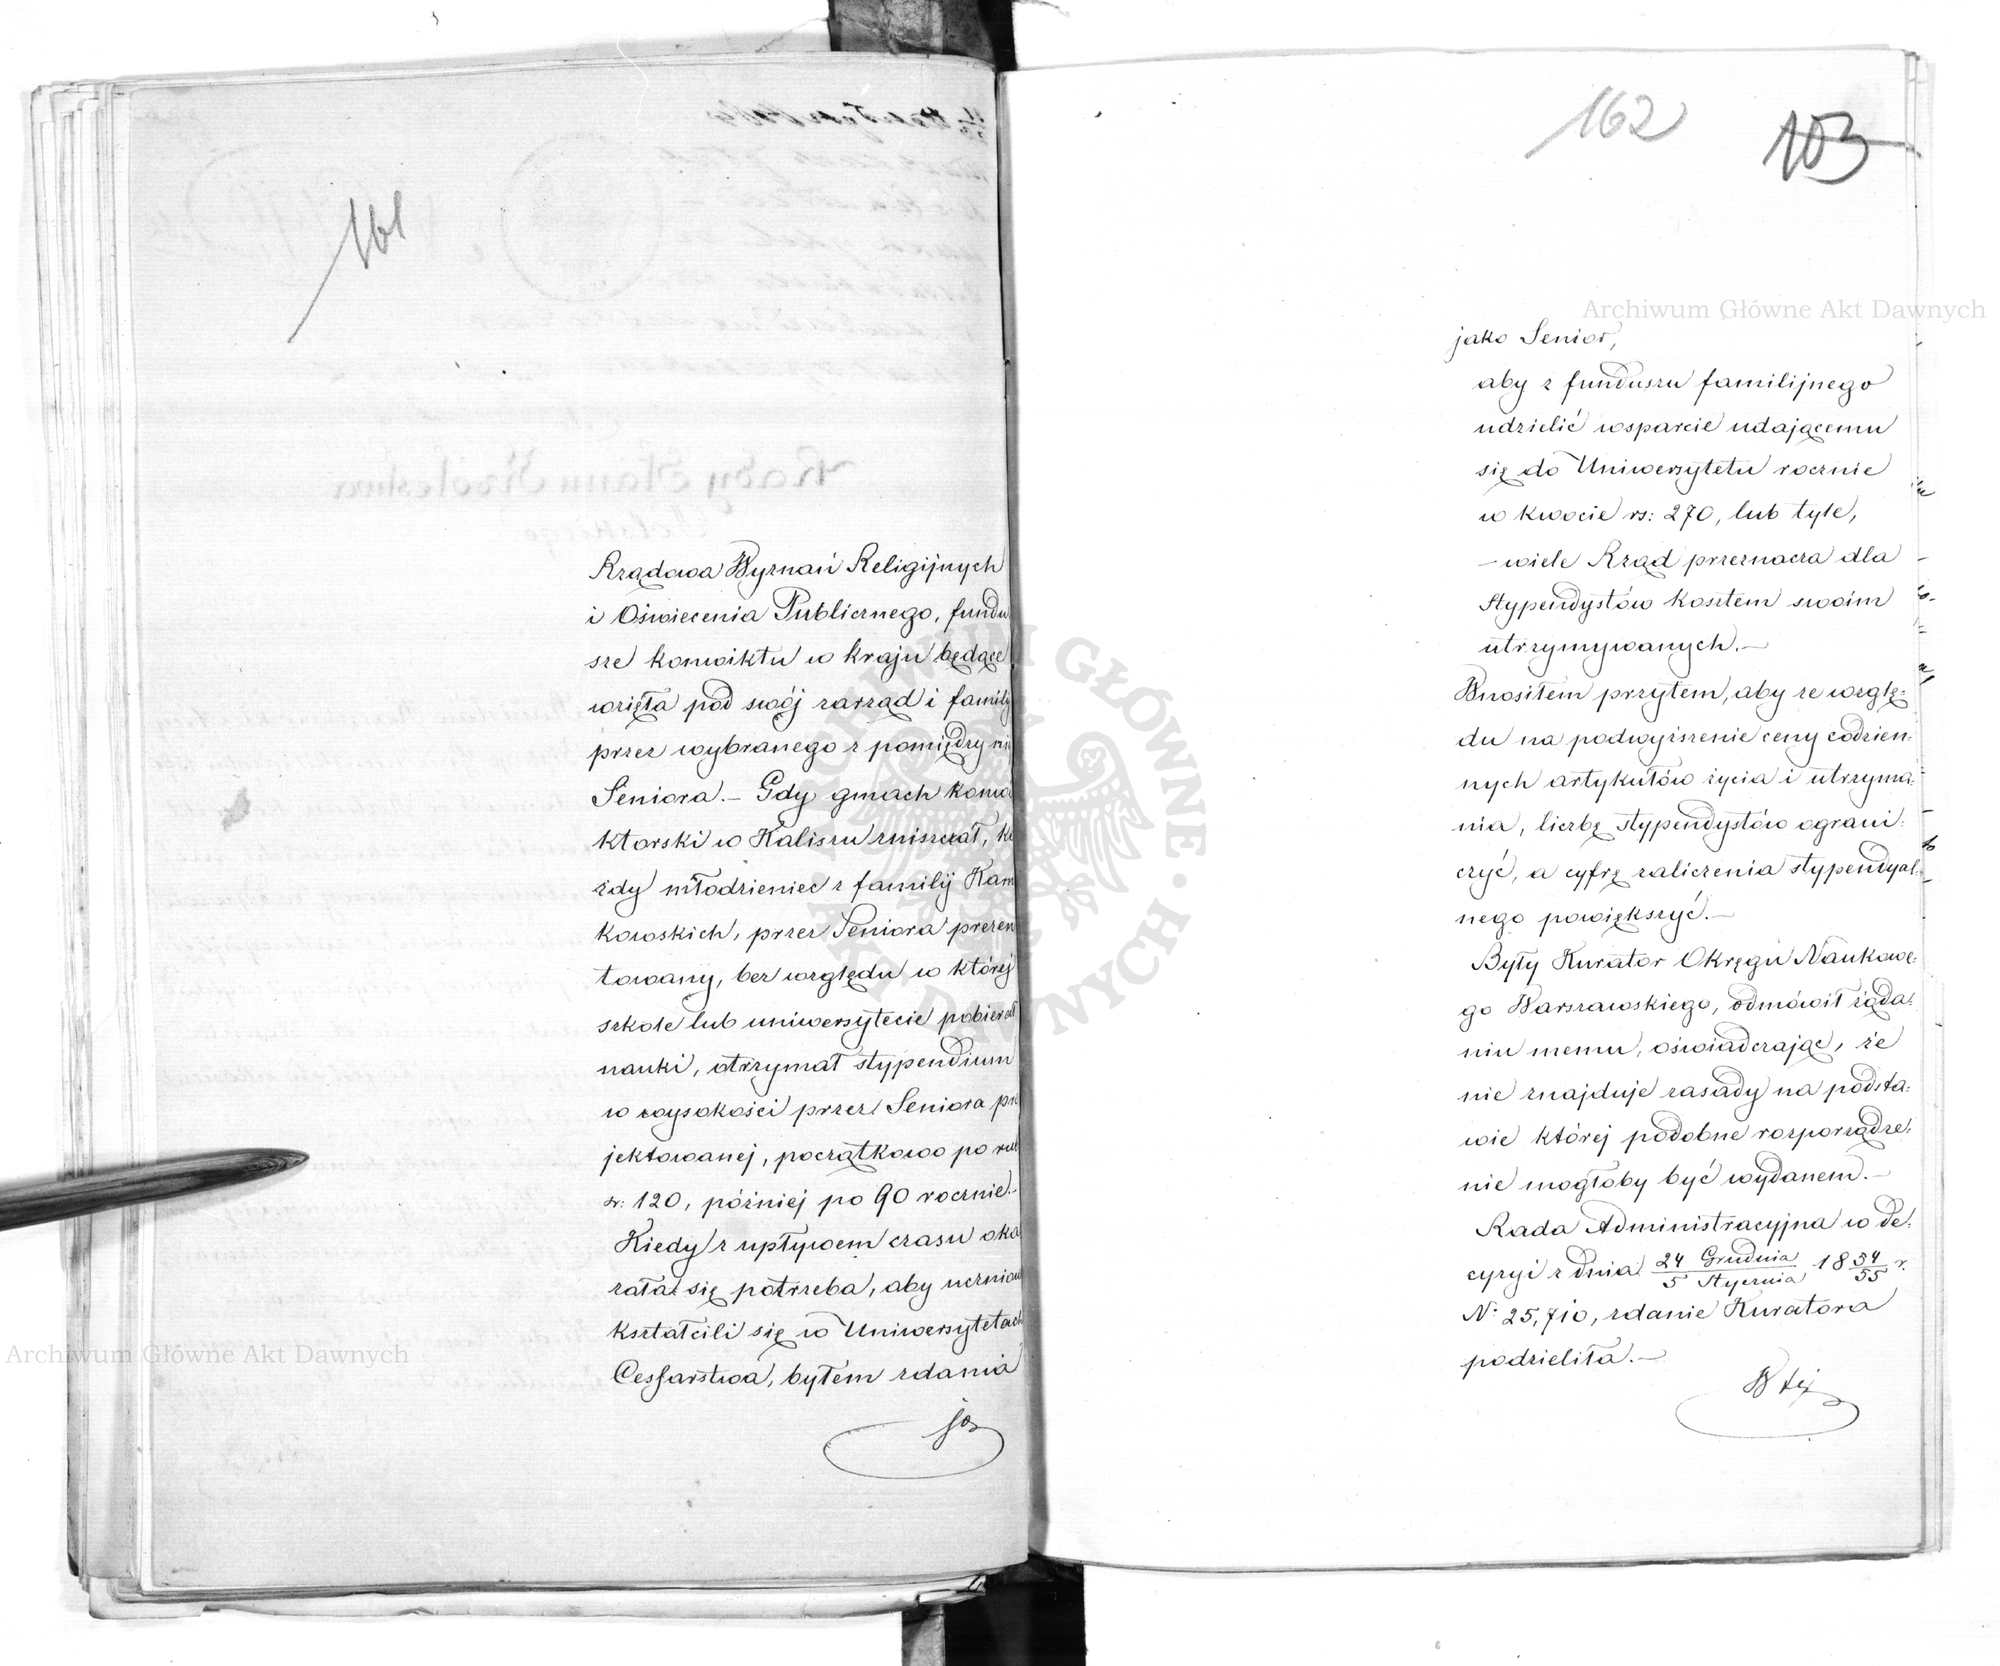 161
Rządowa Wyznań Religijnych
i Oświecenia Publicznego, fundu
sze konwiktu w kraju będące
wzięła pod swój zarząd i familij
przez wybranego z pomiędzy ni
Seniora.— Gdy gmach konw
ktorski w Kaliszu zniszczał, ka
żdy młodzieniec z familij Kam
kowskich, przez Seniora prezen
towany, bez względu w której
szkole lub uniwersytecie pobierał
nauki, otrzymał stypendium
w wysokości przez Seniora pro
jektowanej, początkowo po
120, później po 90 rocznie.—
Kiedy z upływem czasu oka
zała się potrzeba, aby uczniow
kształcili się w Uniwersytetach
Cesarstwa, byłem zdania
jo
162 103
jako Senior,
aby z funduszu familijnego
udzielić wsparcie udającemu
się do Uniwersytetu rocznie
w kwocie rs: 270, lub tyle,
— wiele Rząd przeznacza dla
stypendystów kosztem swoim
utrzymywanych.—
Wnosiłem przytem, aby ze wzglę-
du na podwyższenie ceny codzien-
nych artykułów życia i utrzyma-
nia, liczbę stypendystów ograni-
czyć, a cyfrę zaliczenia stypendyal-
nego powiększyć.—
Były Kurator Okręgu Naukowe-
go Warszawskiego, odmówił żąda-
niu memu, oświadczając, że
nie znajduje zasady na podsta-
wie której podobne rozporządze-
nie mogłoby być wydanem.—
Rada Administracyjna w de-
cyzyi z dnia 24 Grudnia/5 Stycznia 1854/55 r.
N: 25,710, zdanie Kuratora
podzieliła.—
W tej
Archiwum Główne Akt Dawnych
Archiwum Główne Akt Dawnych
ARCHIWUM GŁÓWNE AKT DAWNYCH